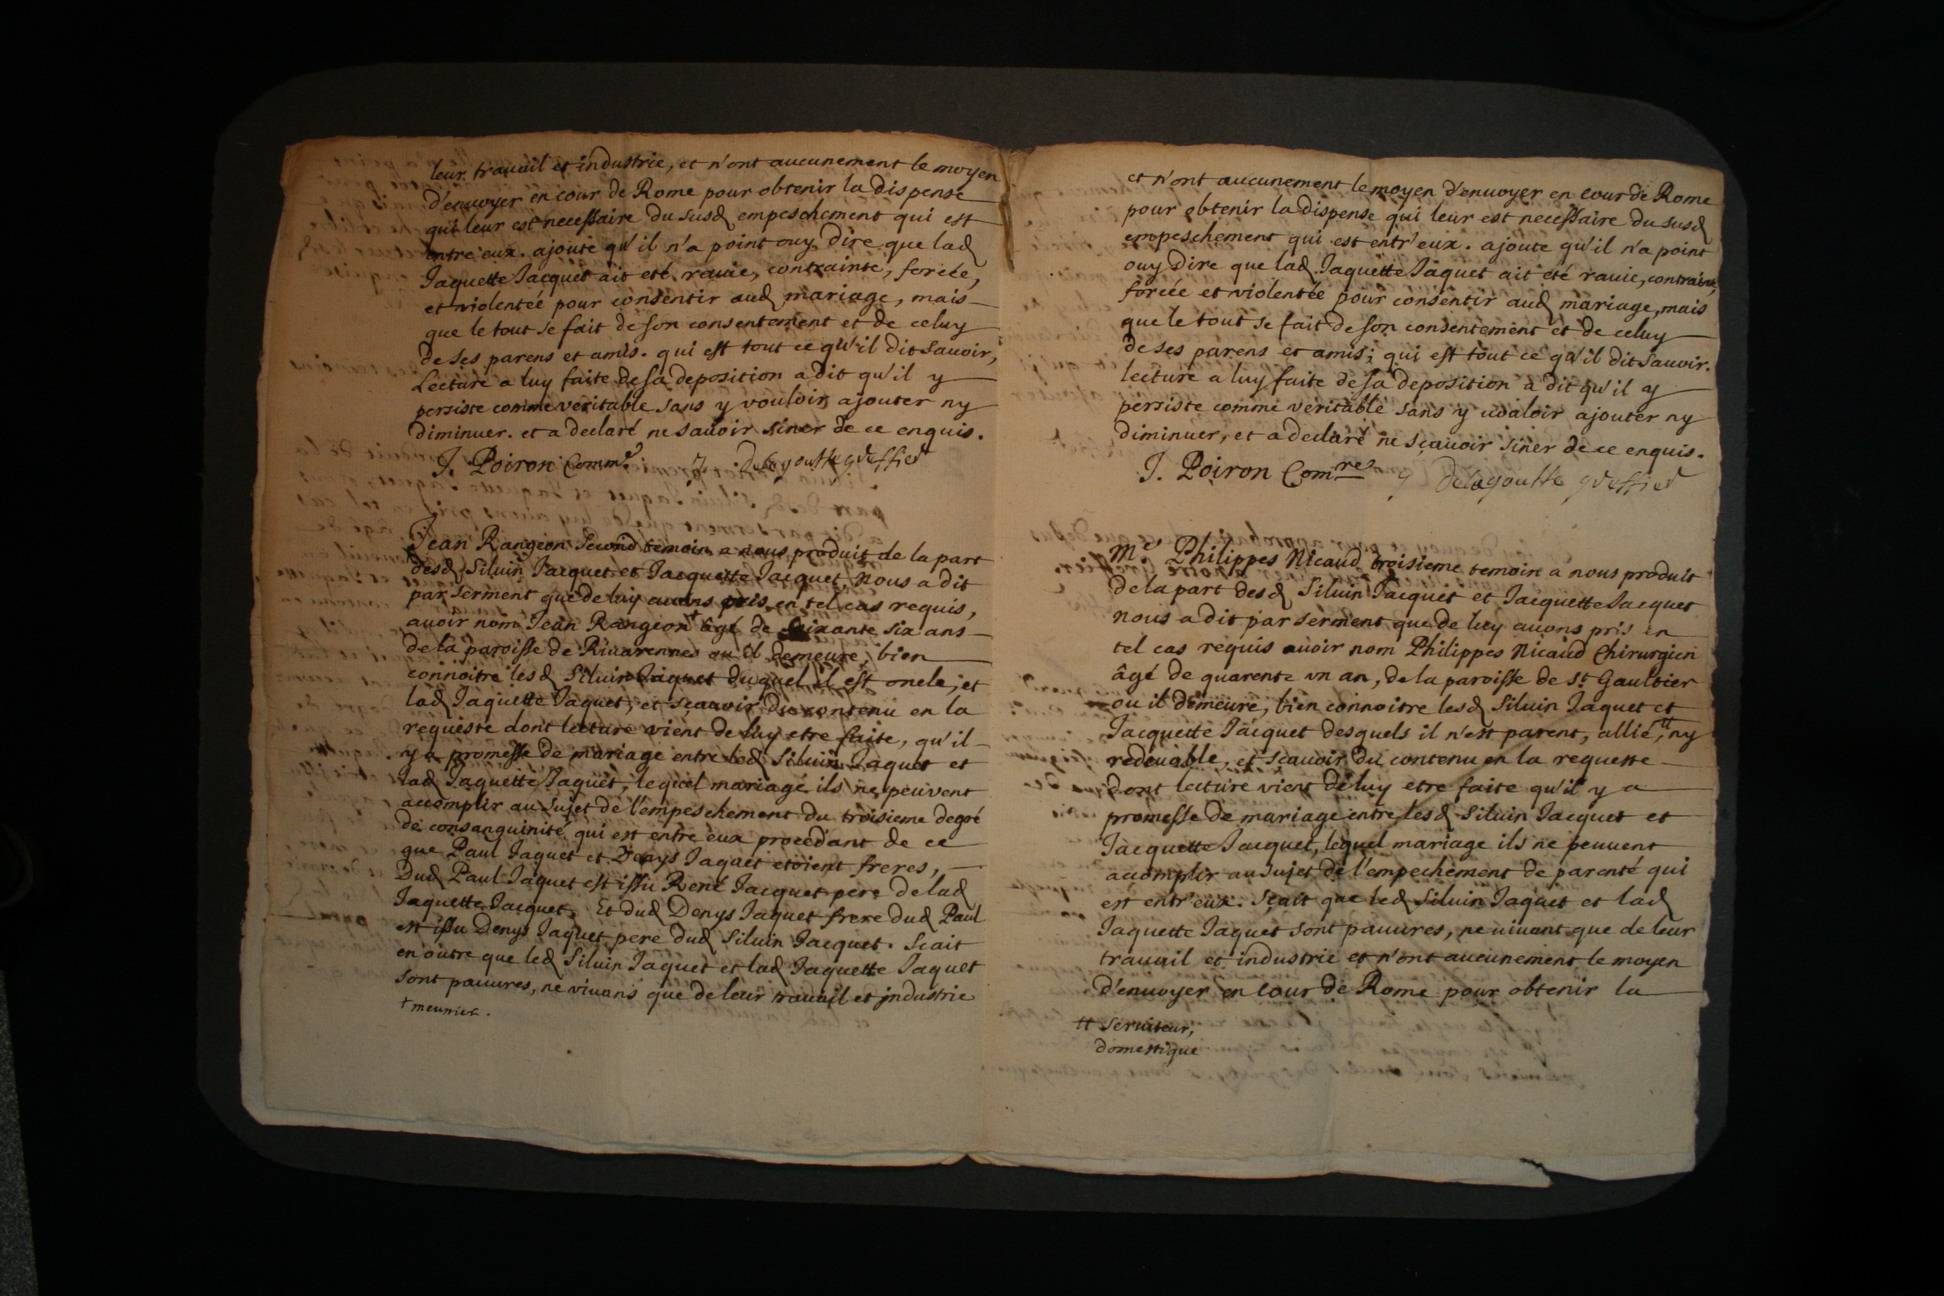 leur travail et industrie, et n'ont aucunement le moyen
d'envoyer en cour de Rome pour obtenir la dispense
qui leur est necessaire du susd empeschement qui est
entre eux. ajoute qu'il n'a point ouy dire que lad
Jaquette Jacquet ait eté ravie, contrainte, forcée,
et violentée pour consentir aud mariage, mais
que le tout se fait de son consentement et de celuy
de ses parens et amis. qui est tout ce qu'il dit savoir,
Lecture a luy faite de sa deposition a dit qu'il y
persiste comme veritable sans y vouloir ajouter ny
diminuer. et a declaré ne savoir siner de ce enquis.
J. Poiron Comm.re Delagoutte greffier
Jean Rangeon second temoin a nous produit de la part
desd Siluin Jacquet et Jacquette Jacquet, nous a dit
par serment que de luy avons pris en tel cas requis,
avoir nom Jean Rangeon âgé de soixante six ans
de la paroisse de Rivarennes ou il demeure, bien
connoitre lesd Siluin Jaquet duquel il est oncle, et
lad Jaquette Jaquet, et sçavoir du contenu en la
requeste dont lecture vient de luy etre faite, qu'il
y a promesse de mariage entre led Siluin Jaquet et
lad Jaquette Jaquet, lequel mariage ils ne peuvent
accomplir au sujet de l'empeschement du troisieme degré
de consanguinité qui est entre eux procedant de ce
que Paul Jaquet et Denys Jaquet etoient freres,
Dud Paul Jaquet est issu René Jacquet pere de lad
Jaquette Jacquet, Et dud Denys Jaquet frere dud Paul
est issu Denys Jaquet pere dud Siluin Jacquet. Sçait
en outre que led Siluin Jaquet et lad Jaquette Jaquet
sont pauvres, ne vivans que de leur travail et industrie
+ meunier.
et n'ont aucunement le moyen d'envoyer en cour de Rome
pour obtenir la dispense qui leur est necessaire du susd
empeschement qui est entr'eux. ajoute qu'il n'a point
ouy dire que lad Jaquette Jaquet ait eté ravie, contrainte,
forcée et violentée pour consentir aud mariage, mais
que le tout se fait de son consentement et de celuy
de ses parens et amis; qui est tout ce qu'il dit savoir.
lecture a luy faite de sa deposition a dit qu'il y
persiste comme veritable sans y vouloir ajouter ny
diminuer, et a declaré ne sçavoir siner de ce enquis.
J. Poiron Com.re Delagoutte greffier
M.e Philippes Nicaud troisieme temoin a nous produit
de la part desd Siluin Jacquet et Jacquette Jacquet
nous a dit par serment que de luy avons pris en
tel cas requis avoir nom Philippes Nicaud Chirurgien
âgé de quarente un an, de la paroisse de St Gaultier
ou il demeure, bien connoitre lesd Siluin Jaquet et
Jacquette Jacquet desquels il n'est parent, allié, tt ny
redevable, et sçavoir du contenu en la requette
dont lecture vient de luy etre faite qu'il y a
promesse de mariage entre lesd Siluin Jacquet et
Jacquette Jacquet, lequel mariage ils ne peuvent
acomplir au sujet de l'empechement de parenté qui
est entr'eux. Sçait que led Siluin Jaquet et lad
Jaquette Jaquet sont pauvres, ne vivant que de leur
travail et industrie et n'ont aucunement le moyen
d'envoyer en cour de Rome pour obtenir la
tt serviteur,
domestique